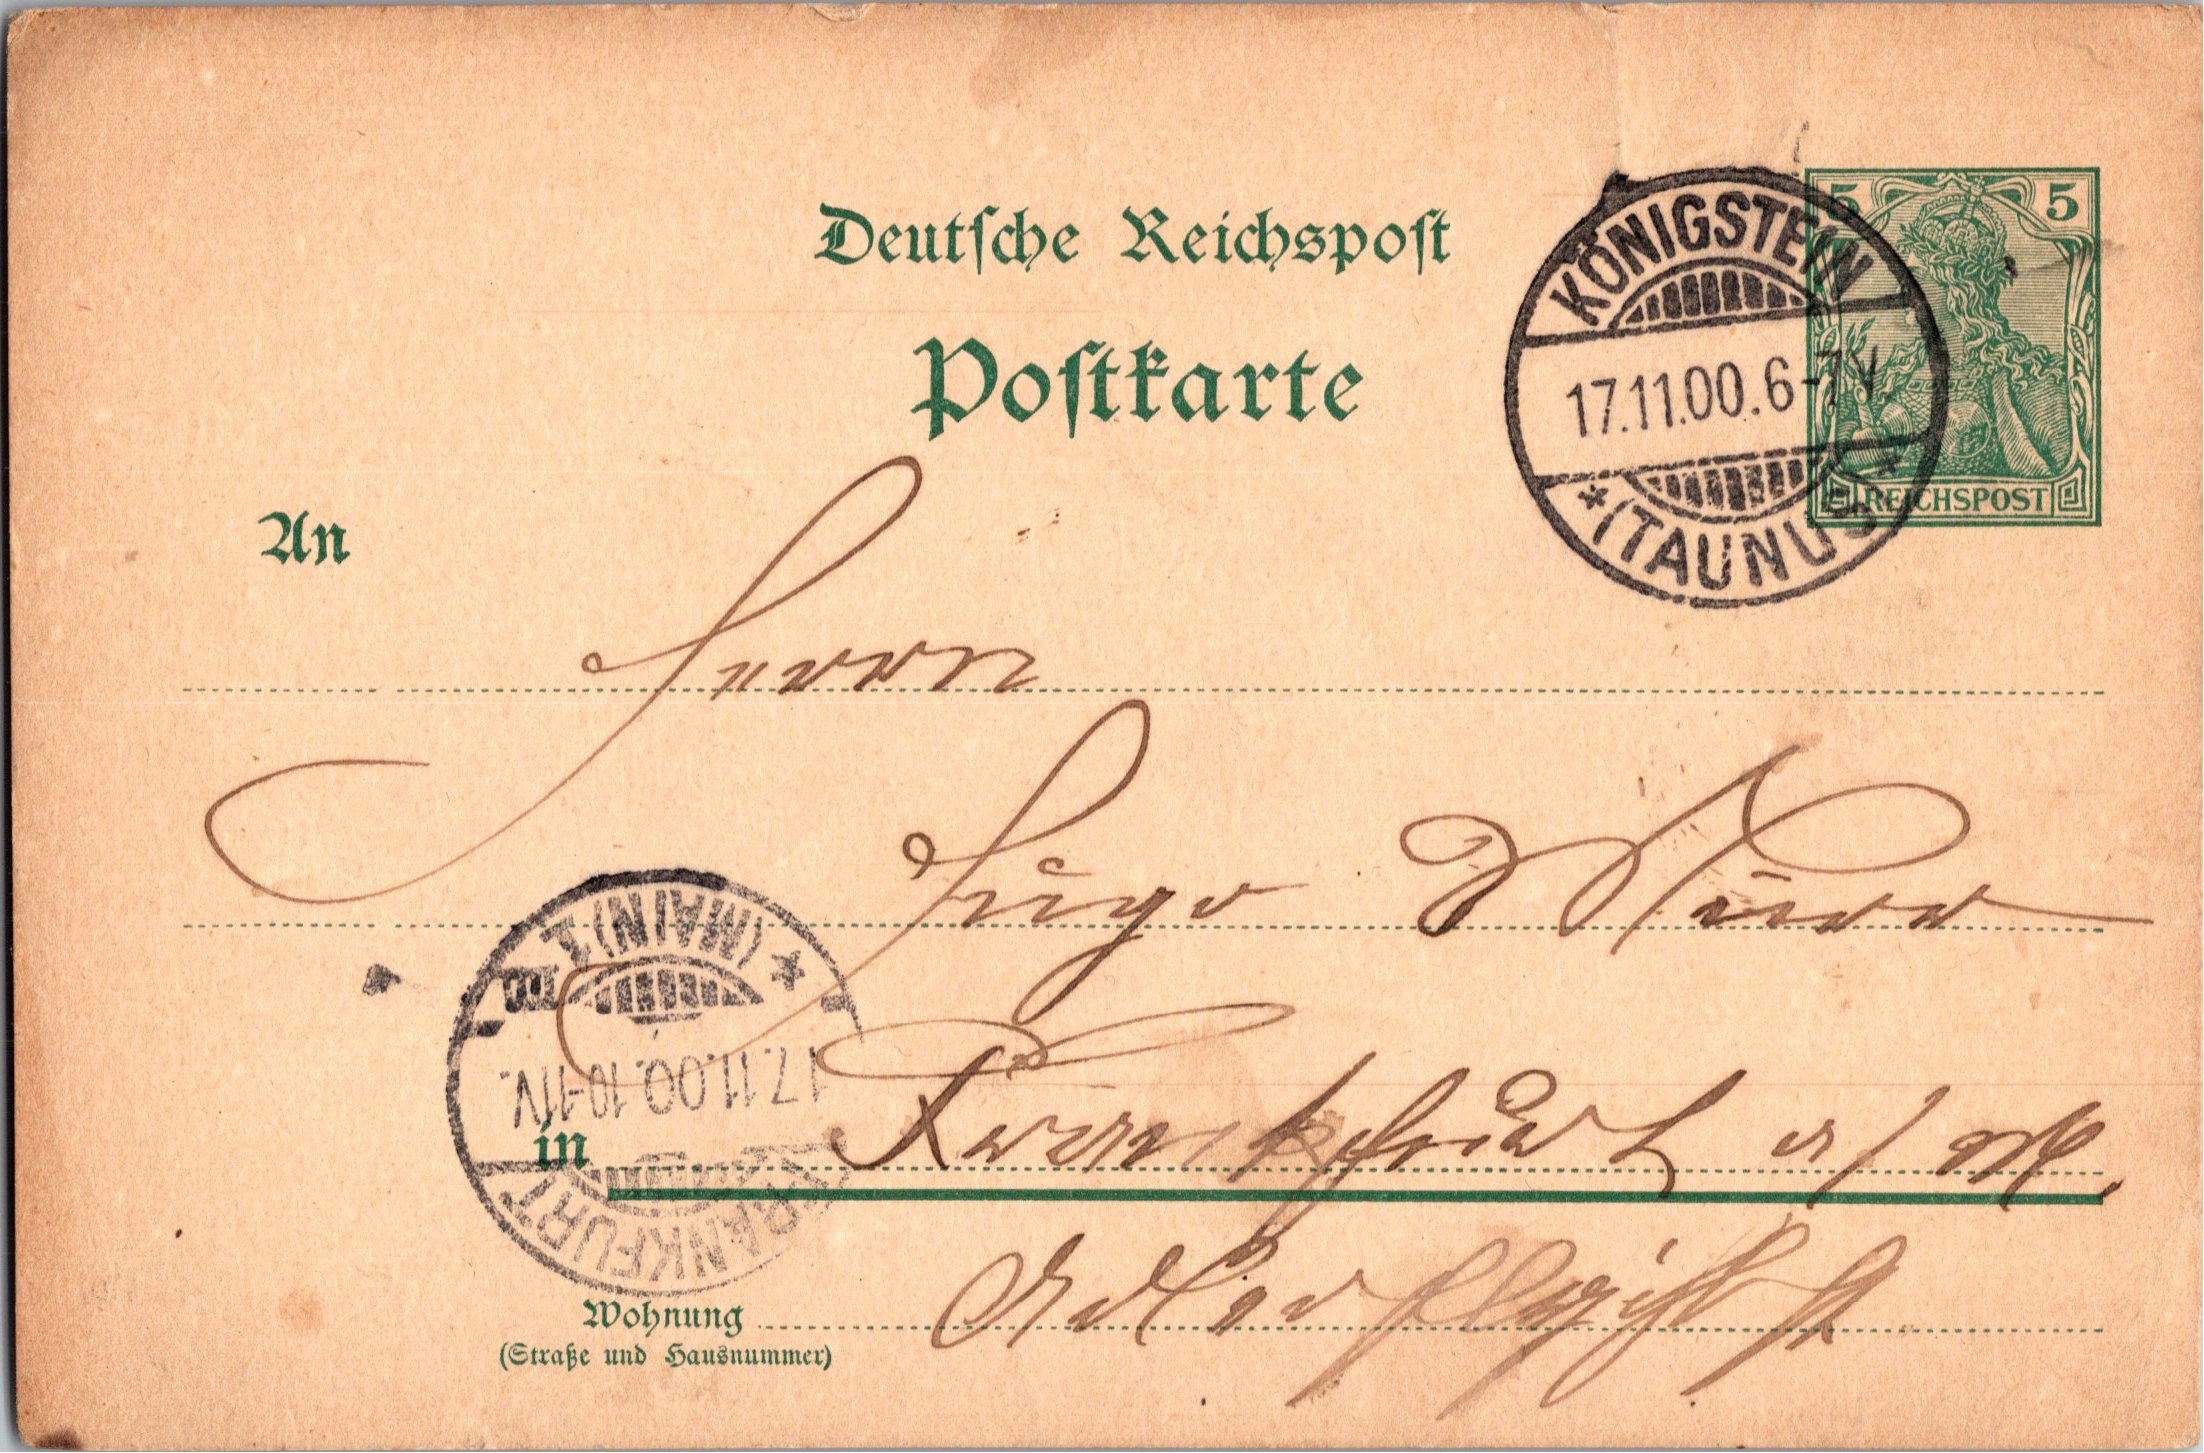 Deutsche Reichspost
Postkarte
5 5
REICHSPOST
KÖNIGSTEIN
17.11.00.6-7V.
*(TAUNUS)*
An
Herrn
Hugo
in Frankfurt a/M.
FRANKFURT
17.11.00.10-11V.
* (MAIN) 1
Wohnung
(Straße und Hausnummer)